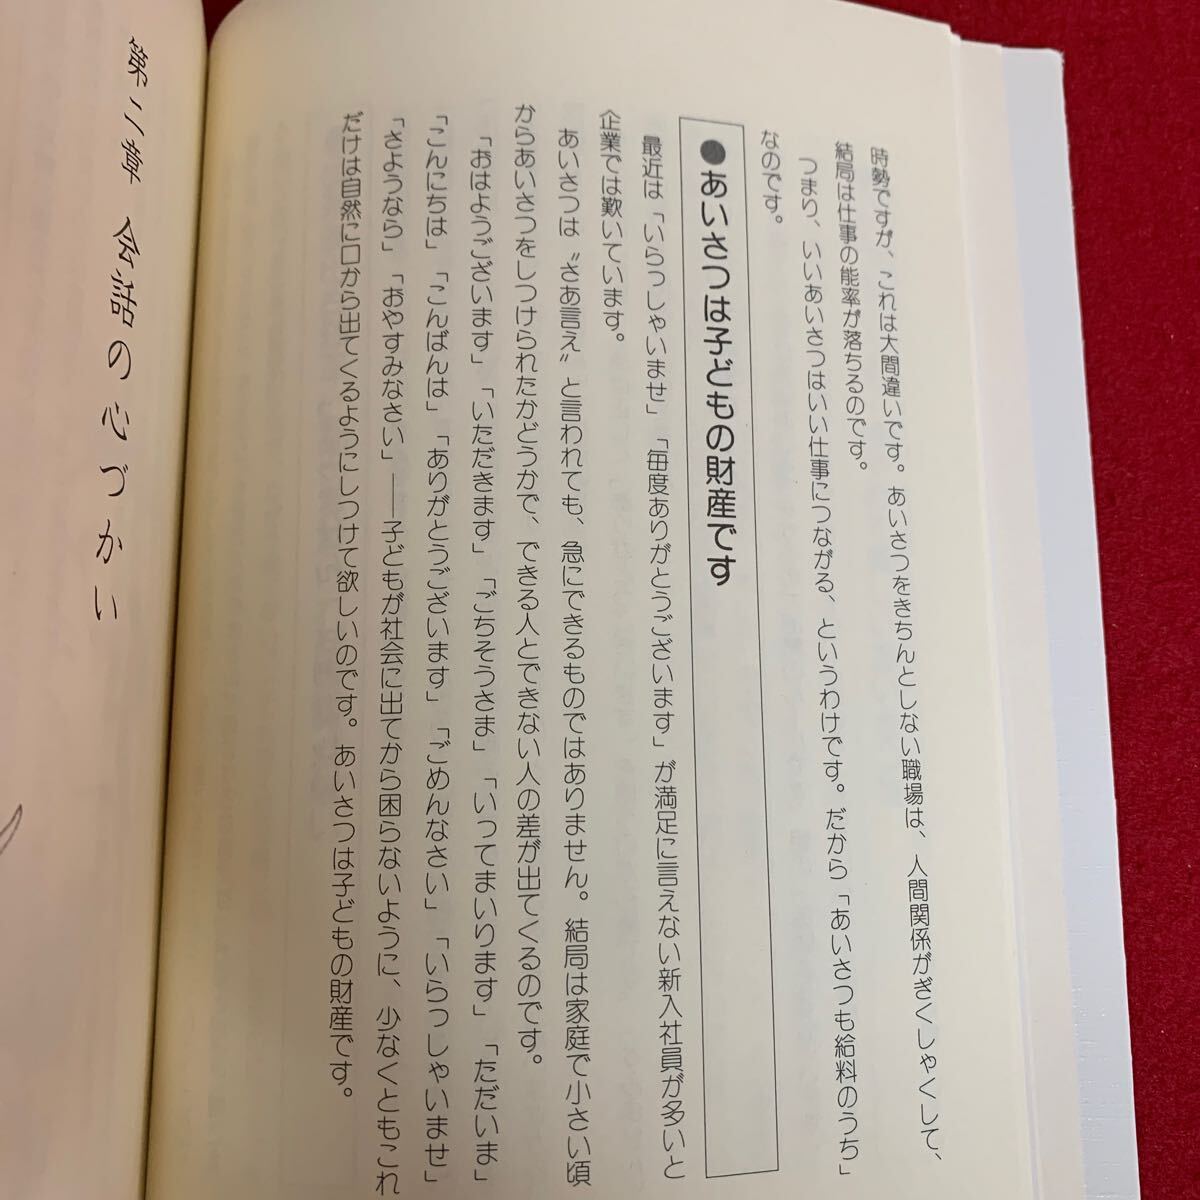 時勢ですが、これは大間違いです。あいさつをきちんとしない職場は、人間関係がぎくしゃくして、
結局は仕事の能率が落ちるのです。
つまり、いいあいさつはいい仕事につながる、というわけです。だから「あいさつも給料のうち」
なのです。
●あいさつは子どもの財産です
最近は「いらっしゃいませ」「毎度ありがとうございます」が満足に言えない新入社員が多いと
企業では歎いています。
あいさつは〝さあ言え〟と言われても、急にできるものではありません。結局は家庭で小さい頃
からあいさつをしつけられたかどうかで、できる人とできない人の差が出てくるのです。
「おはようございます」「いただきます」「ごちそうさま」「いってまいります」「ただいま」
「こんにちは」「こんばんは」「ありがとうございます」「ごめんなさい」「いらっしゃいませ」
「さようなら」「おやすみなさい」――子どもが社会に出てから困らないように、少なくともこれ
だけは自然に口から出てくるようにしつけて欲しいのです。あいさつは子どもの財産です。
第二章 会話の心づかい